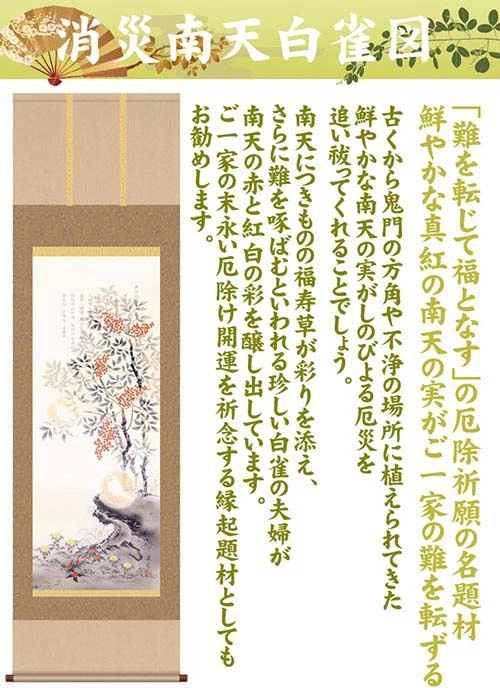 消災南天白雀図
「難を転じて福となす」の厄除祈願の名題材
鮮やかな真紅の南天の実がご一家の難を転ずる
古くから鬼門の方角や不浄の場所に植えられてきた
鮮やかな南天の実がしのびよる厄災を
追い祓ってくれることでしょう。
南天につきものの福寿草が彩りを添え、
さらに難を啄ばむといわれる珍しい白雀の夫婦が
南天の赤と紅白の彩を醸し出しています。
ご一家の末永い厄除け開運を祈念する縁起題材としても
お勧めします。